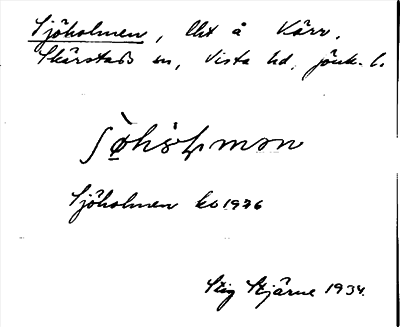 Sjöholmen, lht å Kärr,
Skärstads sn, Vista hd, Jönk. l.
Sjöholmen kb 1936
Stig Stjärne 1934.